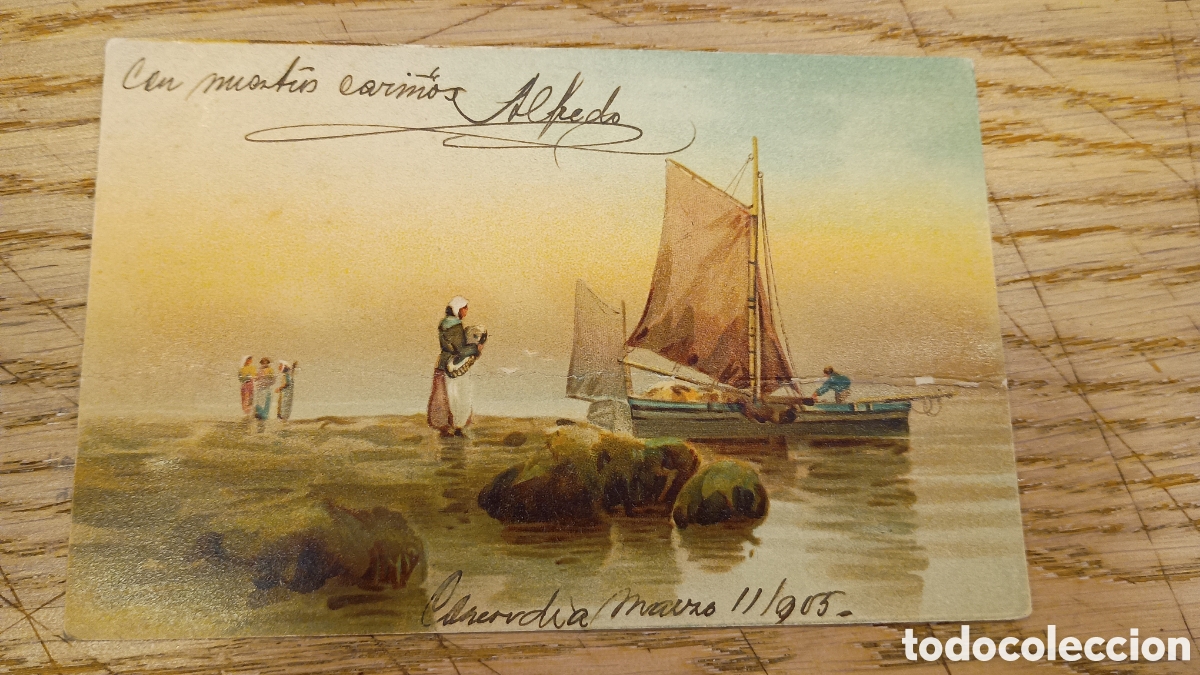 Con nuestros cariños Alfredo
Concordia Marzo 11/905-
todocoleccion